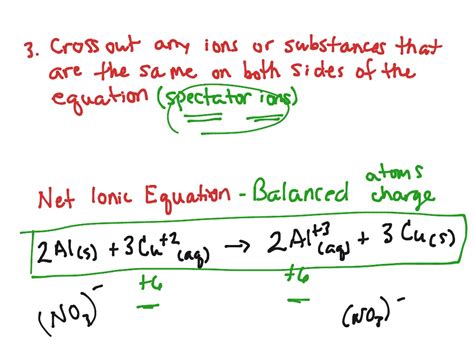 3. Cross out any ions or substances that
are the same on both sides of the
equation (spectator ions)
Net Ionic Equation - Balanced atoms charge
2Al(s) + 3Cu⁺²(aq) → 2Al⁺³(aq) + 3Cu(s)
+6 +6
(NO₃)⁻ (NO₃)⁻